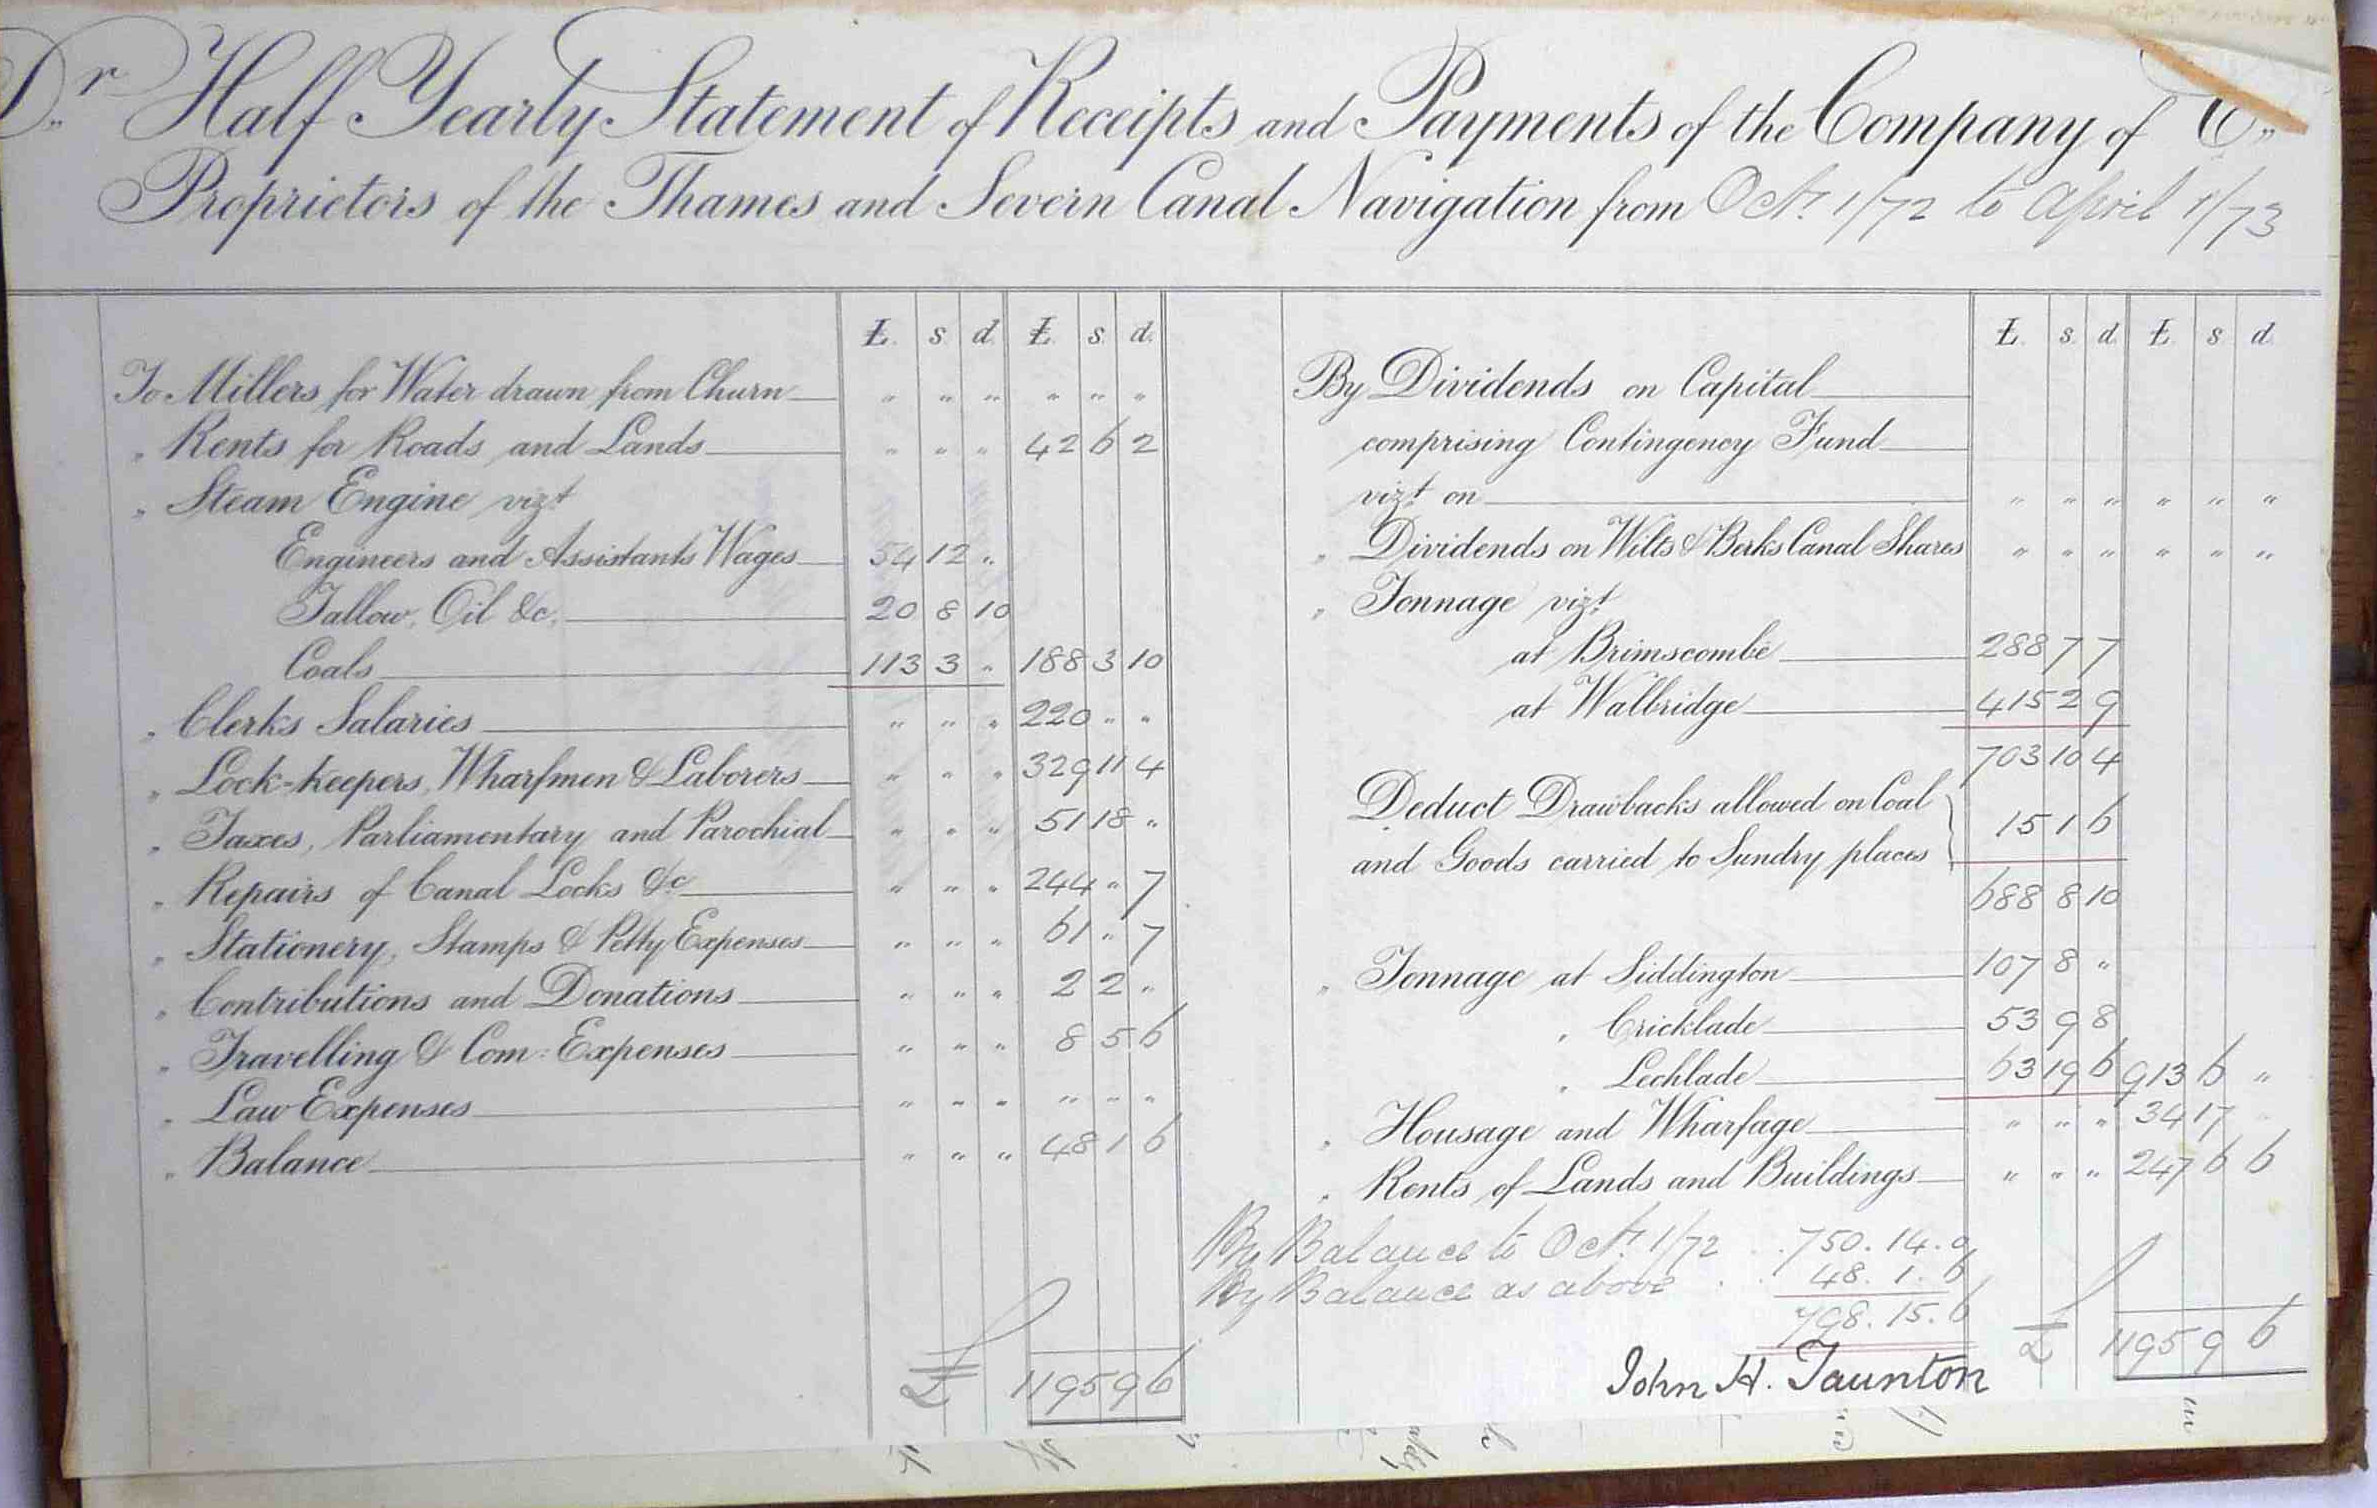 Dr Half Yearly Statement of Receipts and Payments of the Company of Cr
Proprietors of the Thames and Severn Canal Navigation from Oct. 1/72 to April 1/73
£. s. d. £. s. d.
To Millers for Water drawn from Churn " " " " " "
" Rents for Roads and Lands " " " 42 6 2
" Steam Engine vizt
Engineers and Assistants Wages 54 12 "
Tallow, Oil &c. 20 8 10
Coals 113 3 " 188 3 10
" Clerks Salaries " " " 220 " "
" Lock-keepers, Wharfmen & Laborers " " " 329 11 4
" Taxes, Parliamentary and Parochial " " " 51 18 "
" Repairs of Canal Locks &c " " " 244 " 7
" Stationery, Stamps & Petty Expenses " " " 61 " 7
" Contributions and Donations " " " 2 2 "
" Travelling & Com: Expenses " " " 8 5 6
" Law Expenses " " " " " "
" Balance " " " 48 1 6
£ 1195 9 6
£. s. d. £. s. d.
By Dividends on Capital
comprising Contingency Fund
vizt on " " " " " "
" Dividends on Wilts & Berks Canal Shares " " " " " "
" Tonnage vizt
at Brimscombe 288 7 7
at Wallbridge 415 2 9
703 10 4
Deduct Drawbacks allowed on Coal
and Goods carried to Sundry places 15 1 6
688 8 10
" Tonnage at Siddington 107 8 "
" Cricklade 53 9 8
" Lechlade 63 19 6 913 6 "
" Housage and Wharfage " " " 34 17 "
" Rents of Lands and Buildings " " " 247 6 6
By Balance to Oct. 1/72 . . 750.14.0
By Balance as above . . 48.1.6
798.15.6
£ 1195 9 6
John H. Taunton